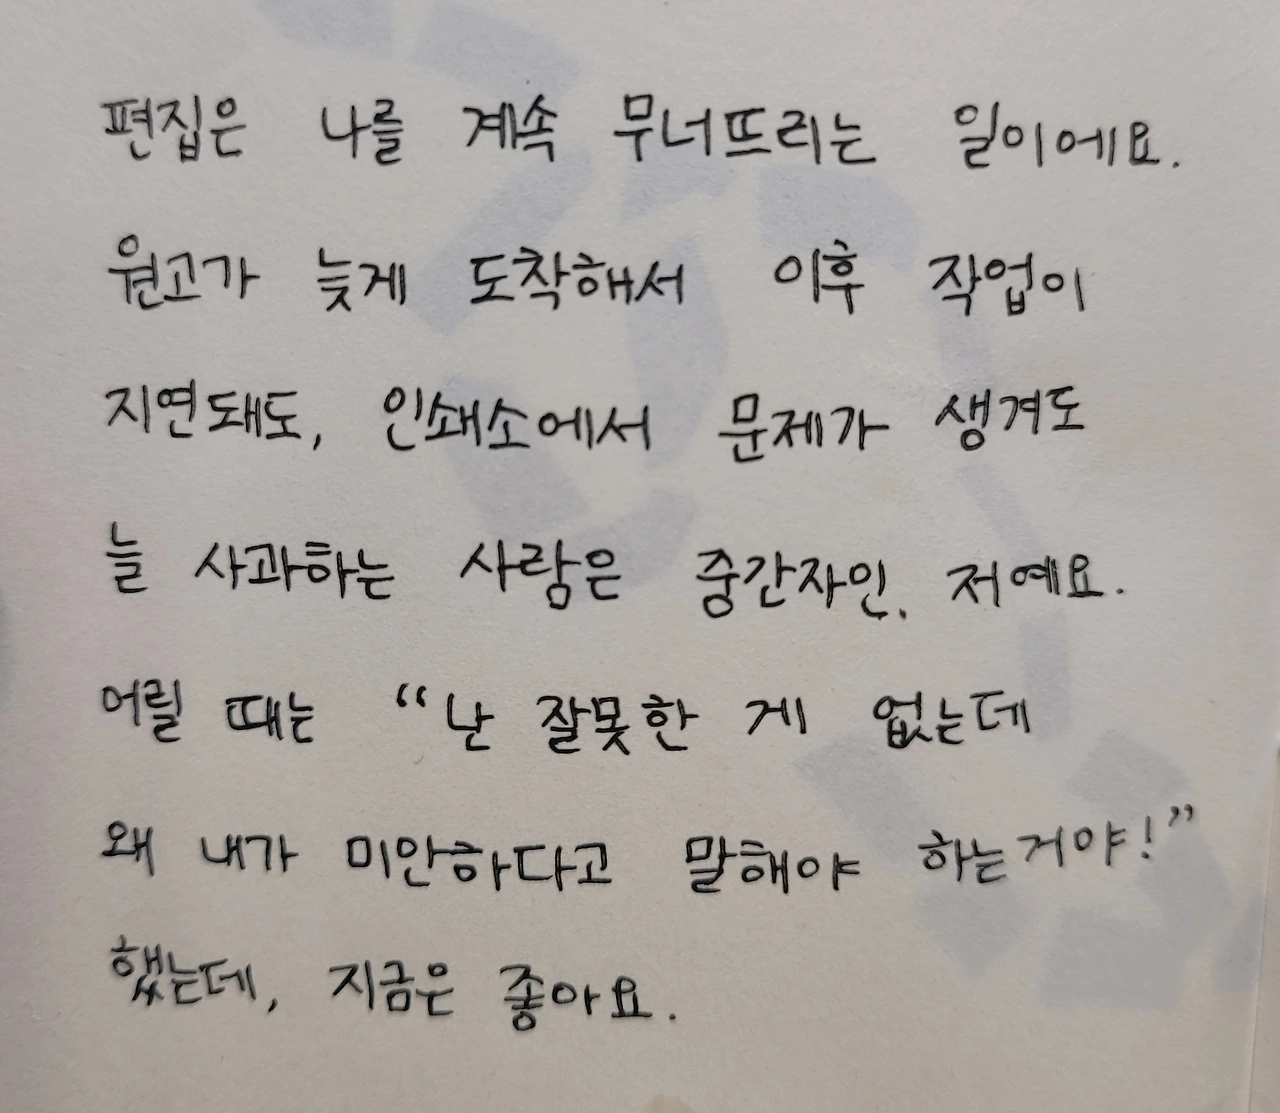 편집은 나를 계속 무너뜨리는 일이에요.
원고가 늦게 도착해서 이후 작업이
지연돼도, 인쇄소에서 문제가 생겨도
늘 사과하는 사람은 중간자인, 저예요.
어릴 때는 “난 잘못한 게 없는데
왜 내가 미안하다고 말해야 하는거야!”
했는데, 지금은 좋아요.